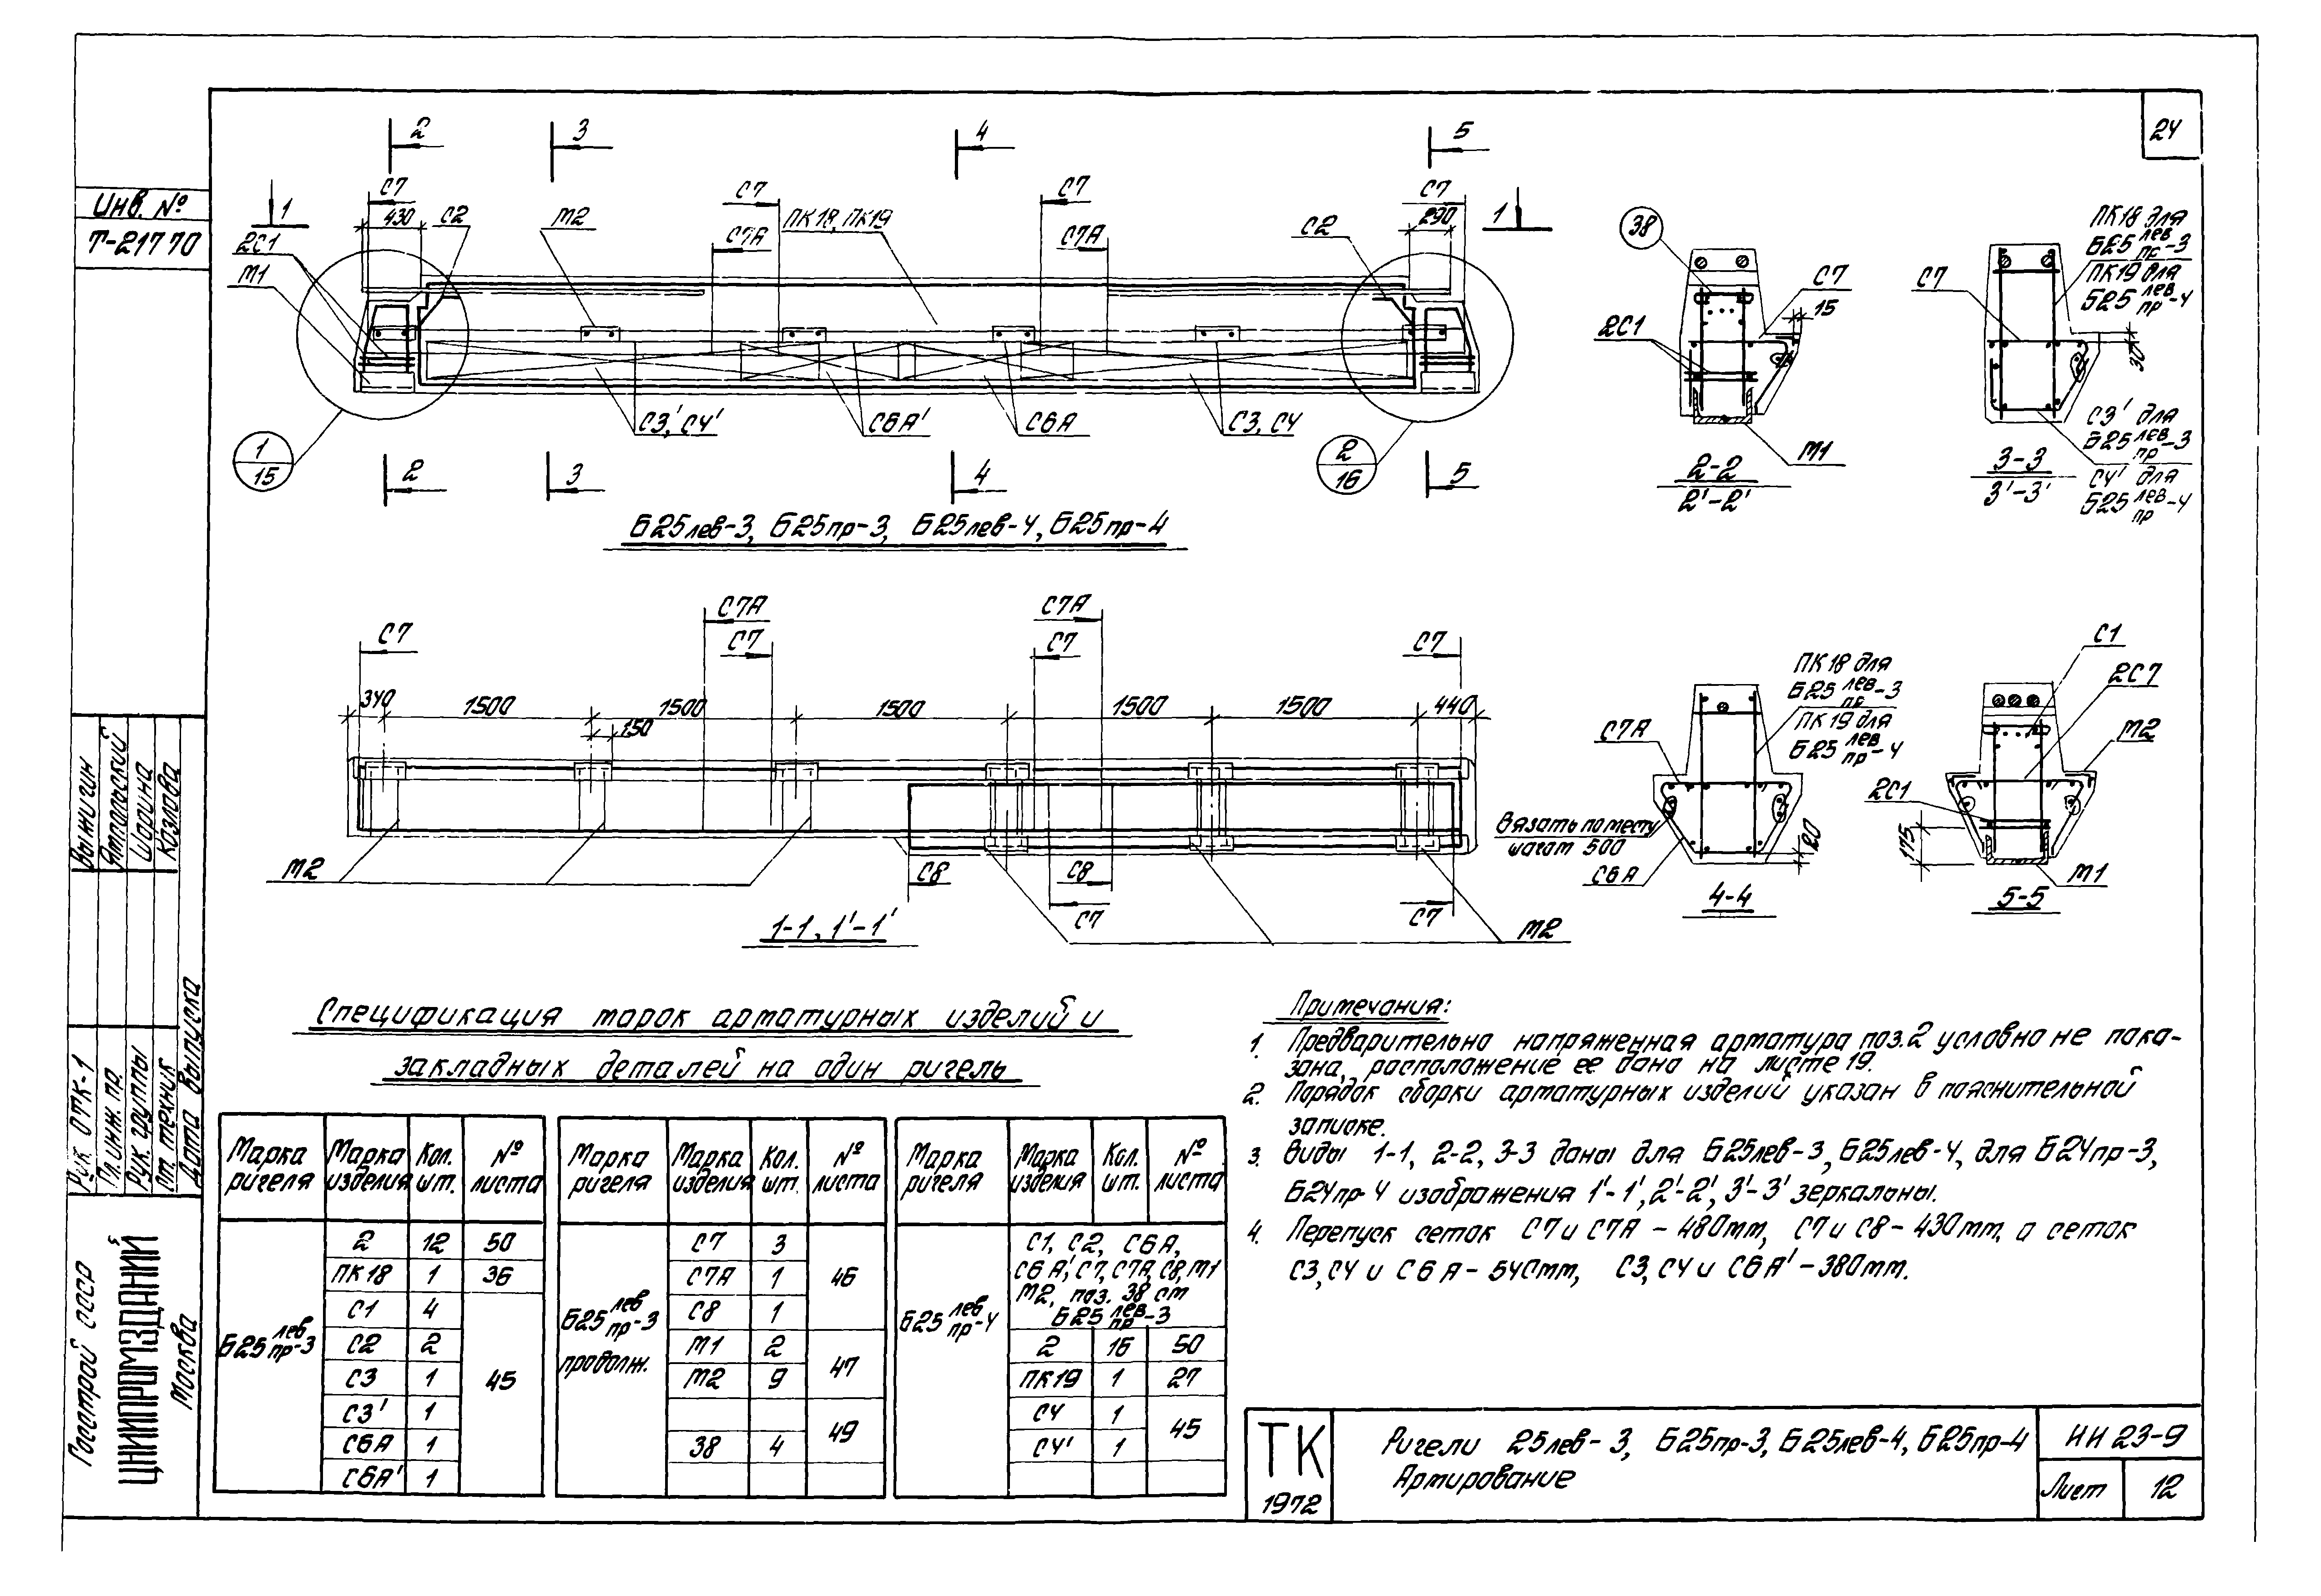 24
Инв. №
Т-21770
2 3 4 5
С7 С7 С7 С7
1 430 С2 М2 ПК18, ПК19 С7А С7А С2 290 1
2С1
М1
С3', С4' С6А' С6А С3, С4
1
15
2
16
2 3 4 5
Б25лев-3, Б25пр-3, Б25лев-4, Б25пр-4
38
С7
15
2С1
М1
2-2
2'-2'
С7
ПК18 для
Б25 лев
пр-3
ПК19 для
Б25 лев
пр-4
30
С3' для
Б25 лев-3
пр
С4' для
Б25 лев-4
пр
3-3
3'-3'
С7А С7А
С7 С7 С7 С7
340 1500 1500 1500 1500 1500 440
150
М2
С8 С8
С7 С7
М2
1-1, 1'-1'
ПК18 для
Б25 лев-3
пр
ПК19 для
Б25 лев
пр-4
С7А
Вязать по месту
шагом 500
С6А
20
4-4
С1
2С7
М2
2С1
175
М1
5-5
Спецификация марок арматурных изделий и
закладных деталей на один ригель
Марка ригеля Марка изделия Кол. шт. № листа
Б25 лев
пр-3
2 12 50
ПК18 1 36
С1 4
С2 2
С3 1 45
С3' 1
С6А 1
С6А' 1
Марка ригеля Марка изделия Кол. шт. № листа
Б25 лев
пр-3
продолж.
С7 3
С7А 1 46
С8 1
М1 2
М2 9 47
49
38 4
Марка ригеля Марка изделия Кол. шт. № листа
Б25 лев
пр-4
С1, С2, С6А,
С6А', С7, С7А, С8, М1
М2, поз. 38 см
Б25 лев-3
пр
2 16 50
ПК19 1 27
С4 1
С4' 1 45
Примечания:
1. Предварительно напряженная арматура поз. 2 условно не пока-
зана, расположение ее дано на листе 19.
2. Порядок сборки арматурных изделий указан в пояснительной
записке.
3. Виды 1-1, 2-2, 3-3 даны для Б25лев-3, Б25лев-4, для Б24пр-3,
Б24пр-4 изображения 1'-1', 2'-2', 3'-3' зеркальны.
4. Перепуск сеток С7 и С7А - 480мм, С7 и С8 - 430мм, а сеток
С3, С4 и С6А - 540мм, С3, С4 и С6А' - 380мм.
ТК
1972
Ригели 25лев-3, Б25пр-3, Б25лев-4, Б25пр-4
Армирование
ИИ 23-9
Лист 12
Рук. ОТК-1 Выжигин
Гл. инж. пр. Ямпольский
Рук. группы Шарина
Ст. техник Козлова
Дата выпуска
Госстрой СССР
ЦНИИПРОМЗДАНИЙ
Москва